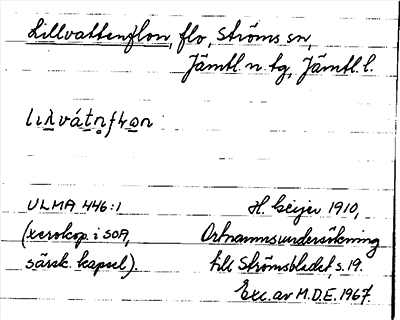 Lillvattenflon, flo, Ströms sn,
Jämtl. n. tg, Jämtl. l.
lιλvátn̥flo̲n
ULMA 446:1 H. Geijer 1910,
(xerokop. i SOA, Ortnamnsundersökning
särsk. kapsel). till Strömsbladet, s. 19.
Exc. av M.D.E. 1967.